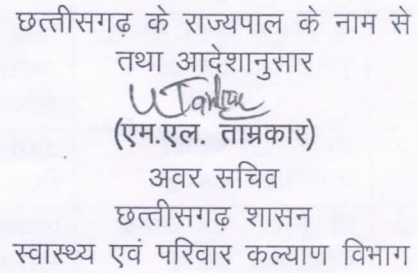 छत्तीसगढ़ के राज्यपाल के नाम से
तथा आदेशानुसार
(एम.एल. ताम्रकार)
अवर सचिव
छत्तीसगढ़ शासन
स्वास्थ्य एवं परिवार कल्याण विभाग